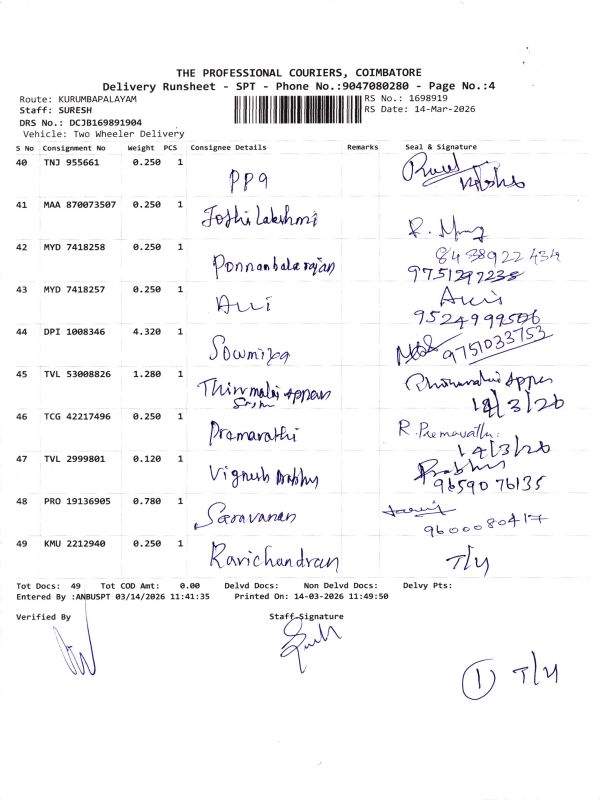 THE PROFESSIONAL COURIERS, COIMBATORE
Delivery Runsheet - SPT - Phone No.:9047080280 - Page No.:4
Route: KURUMBAPALAYAM RS No.: 1698919
Staff: SURESH RS Date: 14-Mar-2026
DRS No.: DCJB169891904
Vehicle: Two Wheeler Delivery
S No Consignment No Weight PCS Consignee Details Remarks Seal & Signature
40 TNJ 955661 0.250 1
PPQ
41 MAA 870073507 0.250 1
Joshi Lakshmi
42 MYD 7418258 0.250 1
8438922434
Ponnambalarajan 9751297238
43 MYD 7418257 0.250 1
9524999506
44 DPI 1008346 4.320 1
Sowmiya 9751033753
45 TVL 53008826 1.280 1
Thirumalai Appan
14/3/26
46 TCG 42217496 0.250 1
Pramavathi R. Premavathi.
14/3/26
47 TVL 2999801 0.120 1 Prabhu
Vignesh Prabhu 9659076135
48 PRO 19136905 0.780 1
Saravanan 9600080417
49 KMU 2212940 0.250 1
Ravichandran T/4
Tot Docs: 49 Tot COD Amt: 0.00 Delvd Docs: Non Delvd Docs: Delvy Pts:
Entered By :ANBUSPT 03/14/2026 11:41:35 Printed On: 14-03-2026 11:49:50
Verified By Staff Signature
1 T/4